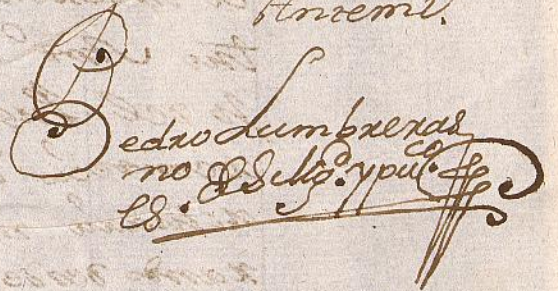 Antemi.
Pedro Lumbreras
no R S Mgd. y puco
es.